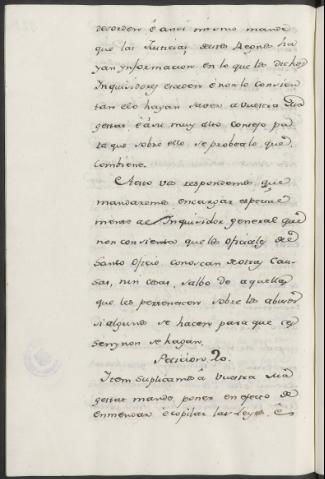 desorden é ansi mismo mande
que las Justicias destos Regnos ha
yan ynformacion en lo que los dichos
Inquisidores exceden é non lo consien
tan élo hagan saver a vuestra Ma
gestad é á su muy alto consejo pa
ra que sobre ello se probea lo que
combiene.
A esto vos respondemos que
mandaremos encargar especial
mente al Inquisidor general que
non consienta que los oficiales del
Santo oficio conozcan de otras Cau
sas, nin cosas, salbo de aquellas
que les pertenecen sobre los abusos
si algunos se hacen para que ce
sen y non se hagan.
Peticion 20.
Item suplicamos á Vuestra Ma
gestad mande poner en efecto de
enmendar é copilar las Leyes, é